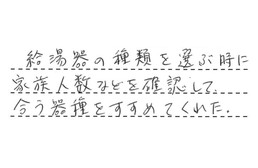 給湯器の種類を選ぶ時に
家族人数などを確認して
合う器種をすすめてくれた.